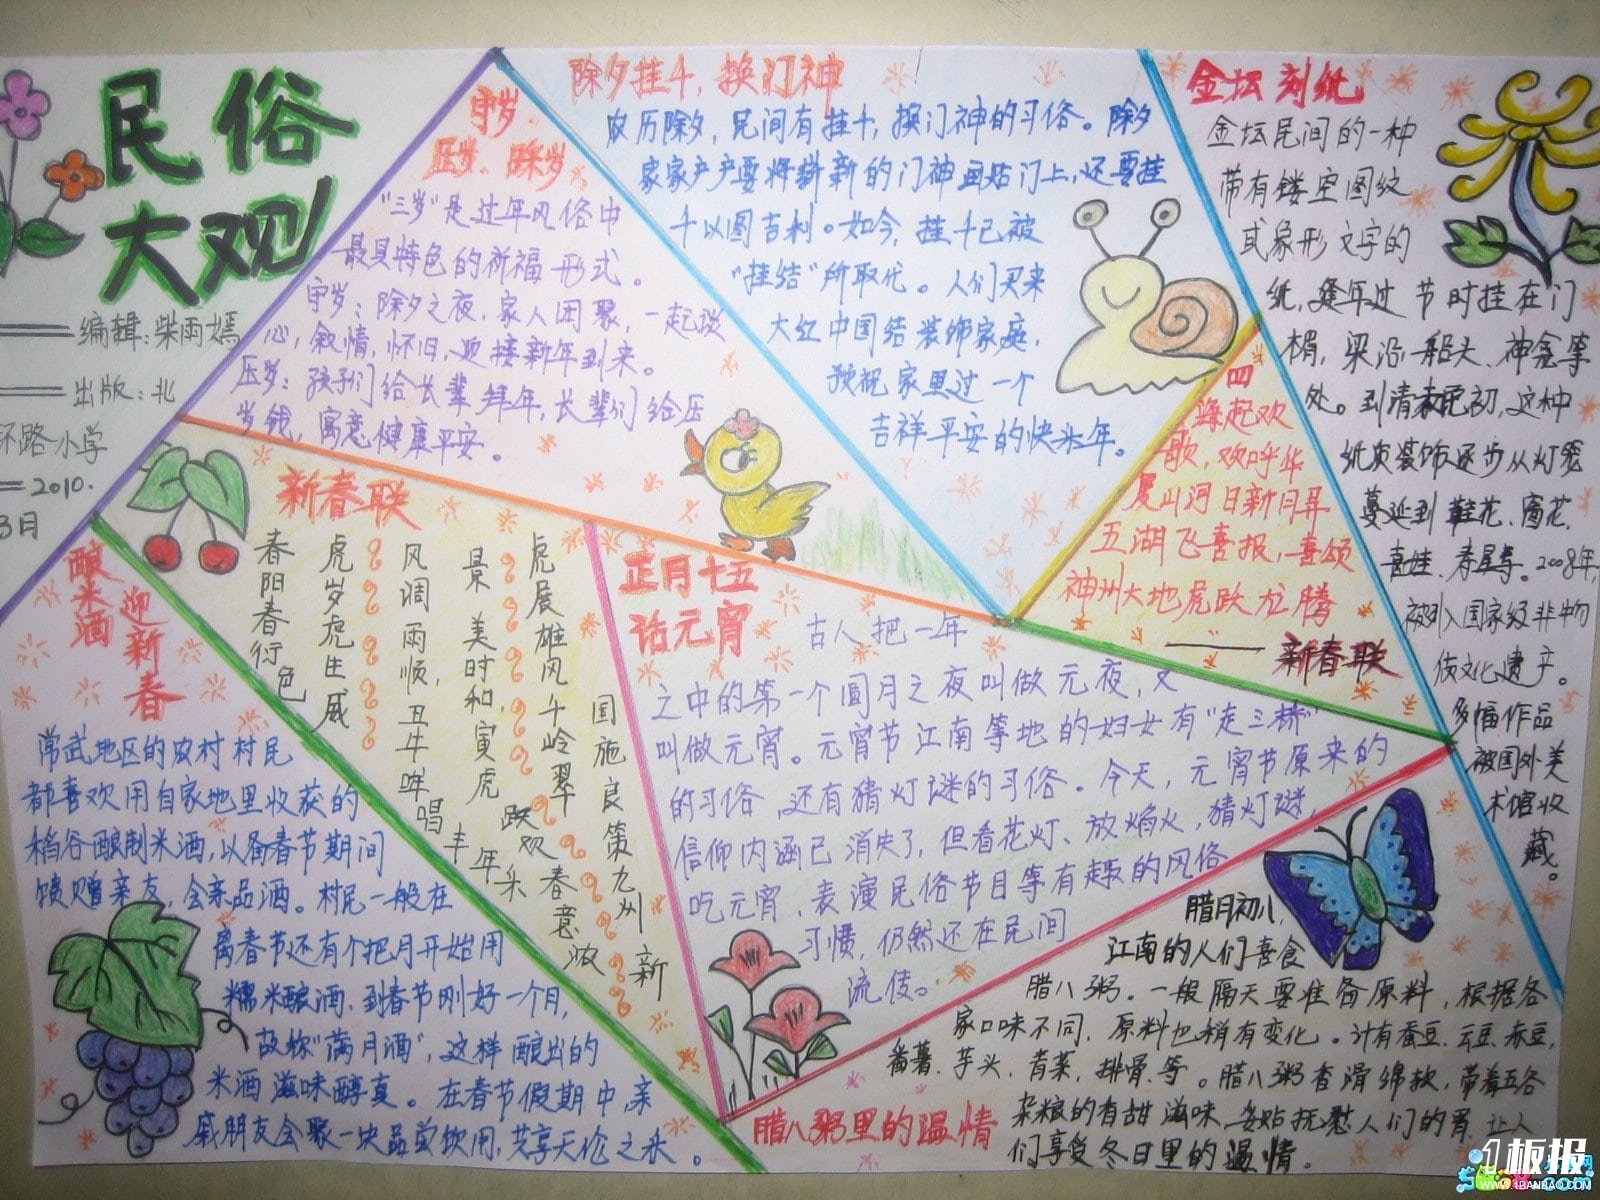 民俗
大观
编辑：柴雨嫣
出版：北
环路小学
2010.
3月
守岁.
压岁.踩岁
"三岁"是过年风俗中
最具特色的祈福形式。
守岁：除夕之夜，家人团聚，一起谈
心，叙情，怀旧，迎接新年到来。
压岁：孩子们给长辈拜年，长辈们给压
岁钱，寓意健康平安。
除夕挂千，换门神
农历除夕，民间有挂千，换门神的习俗。除夕
家家户户要将新的门神画贴门上，还要挂
千以图吉利。如今，挂千已被
"挂结"所取代。人们买来
大红中国结装饰家庭，
预祝家里过一个
吉祥平安的快乐年。
金坛刻纸
金坛民间的一种
带有镂空图纹
或象形文字的
纸，逢年过节时挂在门
楣，梁沿一船头、神龛等
处。到清末民初，这种
纸质装饰逐步从灯笼
蔓延到鞋花、窗花、
喜娃、寿屋等。2008年，
被列入国家级非物
质文化遗产。
多幅作品
被国外美
术馆收
藏。
四
海起欢
歌，欢呼华
夏山河日新月异
五湖飞喜报，喜颂
神州大地虎跃龙腾
新春联
新春联
春阳春行色
虎岁虎生威
风调雨顺，丑牛哞唱丰年
景美时和，寅虎跃欢乐
虎展雄风千岭翠
春意浓
国施良策九州新
正月十五
话元宵
古人把一年
之中的第一个圆月之夜叫做元夜，又
叫做元宵。元宵节江南等地的妇女有"走三桥"
的习俗，还有猜灯谜的习俗。今天，元宵节原来的
信仰内涵已消失了，但看花灯、放焰火，猜灯谜，
吃元宵、表演民俗节目等有趣的风俗
习惯，仍然还在民间
流传。
酿米酒
迎新春
常武地区的农村村民
都喜欢用自家地里收获的
稻谷酿制米酒，以备春节期间
馈赠亲友，会亲品酒。村民一般在
离春节还有个把月开始用
糯米酿酒，到春节刚好一个月，
故称"满月酒"，这样酿出的
米酒滋味醇真。在春节假期中，亲
戚朋友会聚一块品尝饮用，共享天伦之乐。
腊八粥里的温情
腊月初八，
江南的人们喜食
腊八粥。一般隔天要准备原料，根据各
家口味不同，原料也稍有变化。计有蚕豆、云豆、赤豆，
番薯、芋头、青菜，排骨、等。腊八粥香滑绵软，带着五谷
杂粮的香甜滋味，妥贴抚慰人们的胃，让人
们享受冬日里的温情。
1板报
WWW.1BANBAO.COM